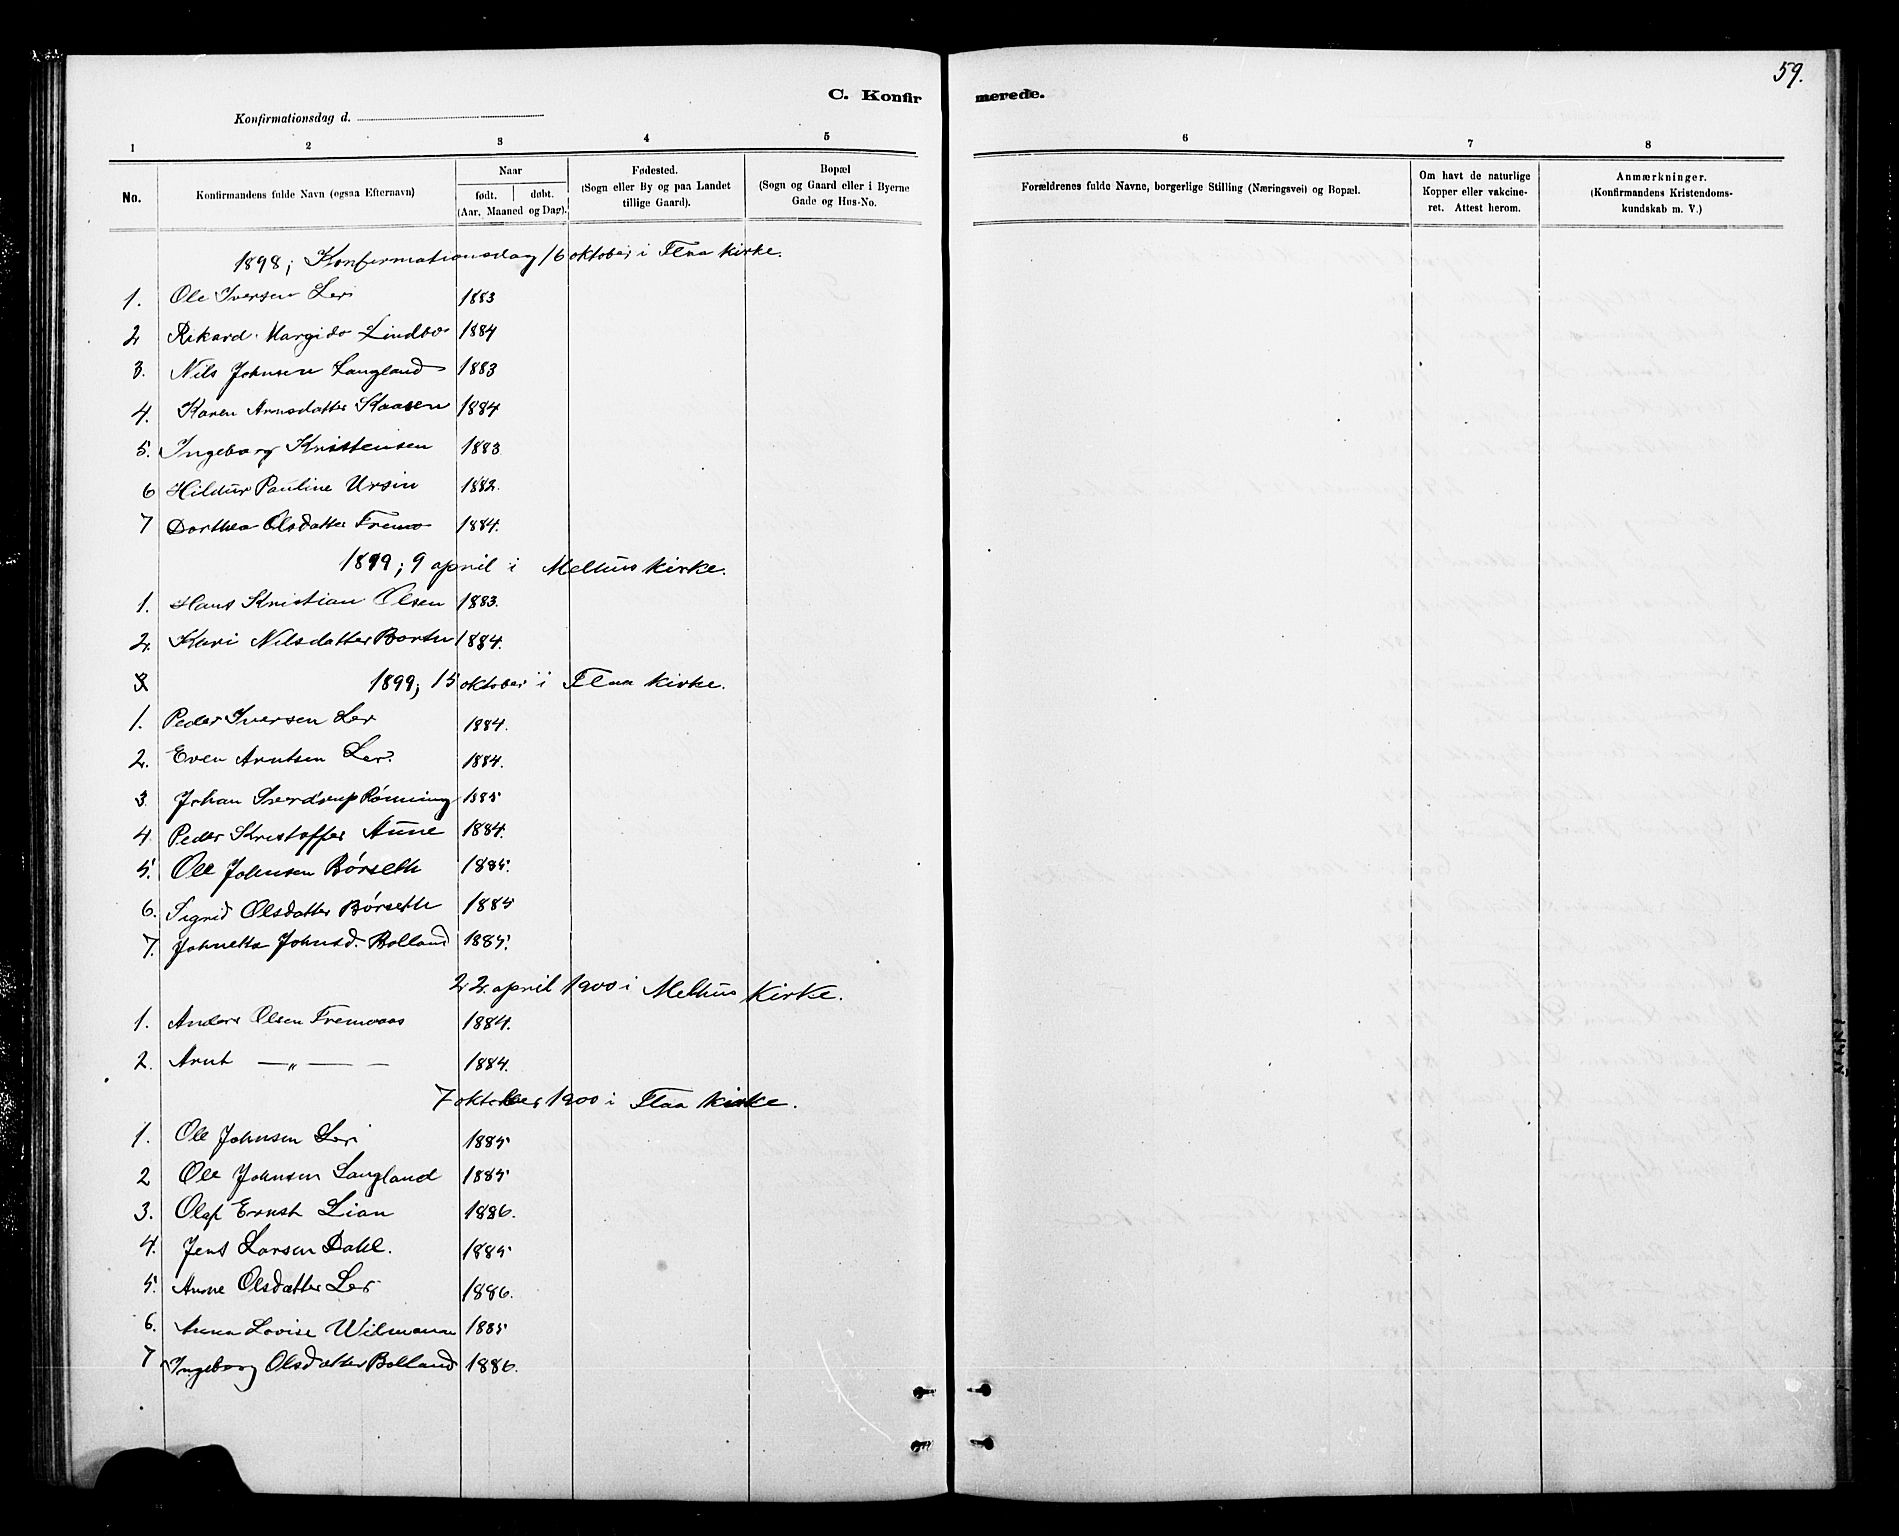 59.
C. Konfirmerede.
Konfirmationsdag d.
1 2 3 4 5 6 7 8
No.
Konfirmandens fulde Navn (ogsaa Efternavn)
Naar
født. døbt.
(Aar, Maaned og Dag).
Fødested.
(Sogn eller By og paa Landet
tillige Gaard).
Bopæl
(Sogn og Gaard eller i Byerne
Gade og Hus-No.
Forældrenes fulde Navne, borgerlige Stilling (Næringsvei) og Bopæl.
Om havt de naturlige
Kopper eller vakcine-
ret. Attest herom.
Anmærkninger.
(Konfirmandens Kristendoms-
kundskab m. V.)
1898; Konfirmationsdag 16 oktober i Flaa kirke.
1. Ole Iversen Ler 1883
2 Rikard Margido Lindbo 1884
3. Nils Johnsen Langland 1883
4. Karen Arnsdatter Kaasen 1884
5. Ingeborg Kristensen 1883
6 Hildur Pauline Ursin 1882.
7 Dorthea Olsdatter Fremo 1884.
1899; 9 april i Melhus kirke.
1. Hans Kristian Olsen 1883.
2. Kari Nilsdatter Borten 1884.
3 1899; 15 oktober i Flaa kirke.
1. Peder Iversen Ler 1884.
2. Even Arntsen Ler 1884.
3 Johan Sverdrup Rønning 1885
4. Peder Kristoffer Aune 1884.
5. Ole Johnsen Børseth 1885.
6. Sigrid Olsdatter Børseth 1885
7. Johnetta Johnsd. Bolland 1885.
22. april 1900 i Melhus Kirke.
1. Anders Olsen Fremoaas 1884.
2. Arnt — „ — — 1884.
7 oktober 1900 i Flaa kirke.
1. Ole Johnsen Ler 1885
2 Ole Johnsen Langland 1885
3. Olaf Ernst Lian 1886.
4. Jens Larsen Dahl. 1885
5. Anne Olsdatter Ler 1886.
6. Anna Lovise Wilmann 1885
7 Ingeborg Olsdatter Bolland 1886.